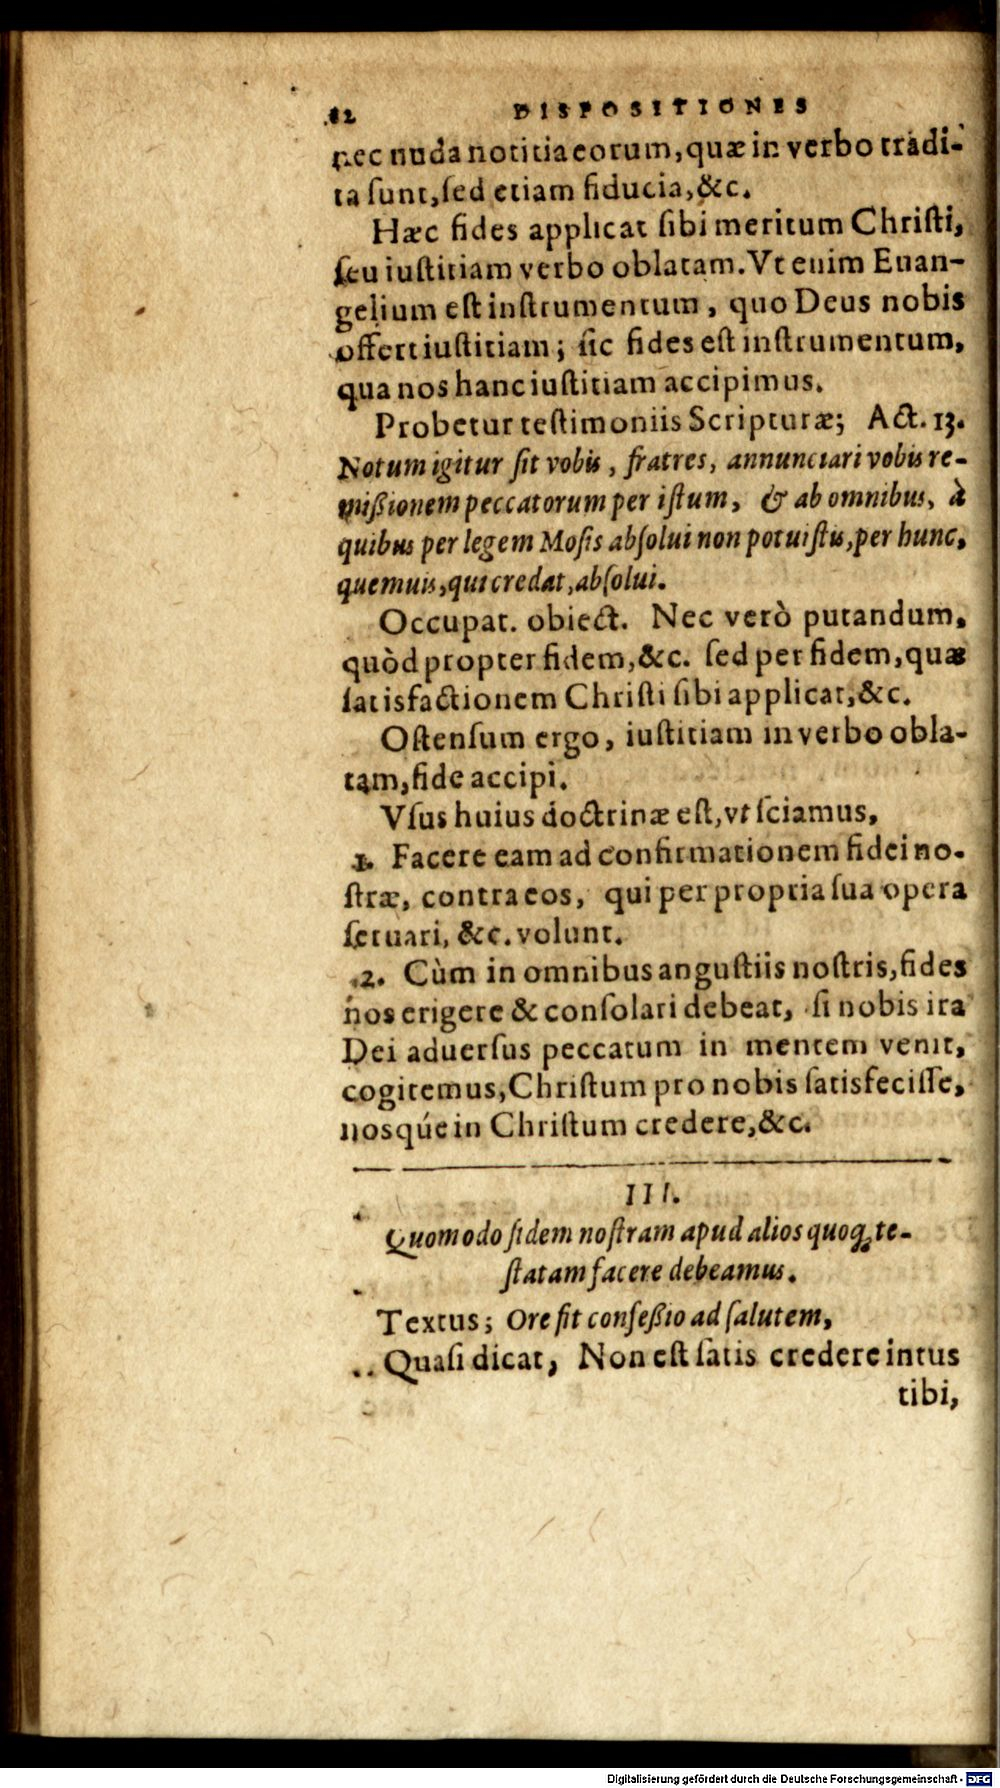 82 DISPOSITIONES
nec nuda notitia eorum, quæ in verbo tradi-
ta ſunt, ſed etiam fiducia, &c.
Hæc fides applicat ſibi meritum Chriſti,
ſeu iuſtitiam verbo oblatam. Vt enim Euan-
gelium eſt inſtrumentum, quo Deus nobis
offert iuſtitiam; ſic fides eſt inſtrumentum,
qua nos hanc iuſtitiam accipimus.
Probetur teſtimoniis Scripturæ; Act. 13.
Notum igitur ſit vobis, fratres, annunciari vobis re-
mißionem peccatorum per iſtum, & ab omnibus, à
quibus per legem Moſis abſolui non potuiſtis, per hunc,
quemuis, qui credat, abſolui.
Occupat. obiect. Nec verò putandum,
quòd propter fidem, &c. ſed per fidem, quæ
ſatisfactionem Chriſti ſibi applicat, &c.
Oſtenſum ergo, iuſtitiam in verbo obla-
tam, fide accipi.
Vſus huius doctrinæ eſt, vt ſciamus,
1. Facere eam ad confirmationem fidei no-
ſtræ, contra eos, qui per propria ſua opera
ſeruari, &c. volunt.
2. Cùm in omnibus anguſtiis noſtris, fides
nos erigere & conſolari debeat, ſi nobis ira
Dei aduerſus peccatum in mentem venit,
cogitemus, Chriſtum pro nobis ſatisfeciſſe,
nosqúe in Chriſtum credere, &c.
III.
Quomodo fidem noſtram apud alios quoq; te-
ſtatam facere debeamus.
Textus; Ore fit confeßio ad ſalutem,
Quaſi dicat, Non eſt ſatis credere intus
tibi,
Digitalisierung gefördert durch die Deutsche Forschungsgemeinschaft - DFG